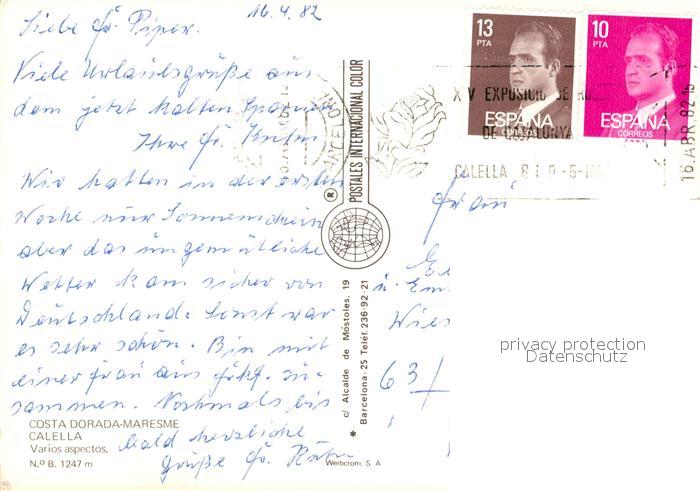 16.4.82
Liebe Fr Piper.
Viele Urlaubsgrüße aus
dem jetzt kalten Spanien
Ihre Fr.
Wir hatten in der ersten
Woche nur Sonnenschein
aber das ungemütliche
Wetter kam sicher von
Deutschland. Sonst war
es sehr schön. Bin mit
einer Frau aus zu
sammen. Nochmals bis
bald herzliche
Grüße Fr.
COSTA DORADA-MARESME
CALELLA
Varios aspectos.
N.º B. 1247 m
POSTALES INTERNACIONAL COLOR
®
c/ Alcalde de Móstoles, 19
Barcelona-25 Teléf. 236-92-21
Werticrom, S. A
13
PTA
ESPAÑA
CORREOS
10
PTA
ESPAÑA
CORREOS
XV EXPOSICIO DE
DE
CALELLA 8 i 9 -5-
16.ABR.82
Frau
Wies
63
privacy protection
Datenschutz